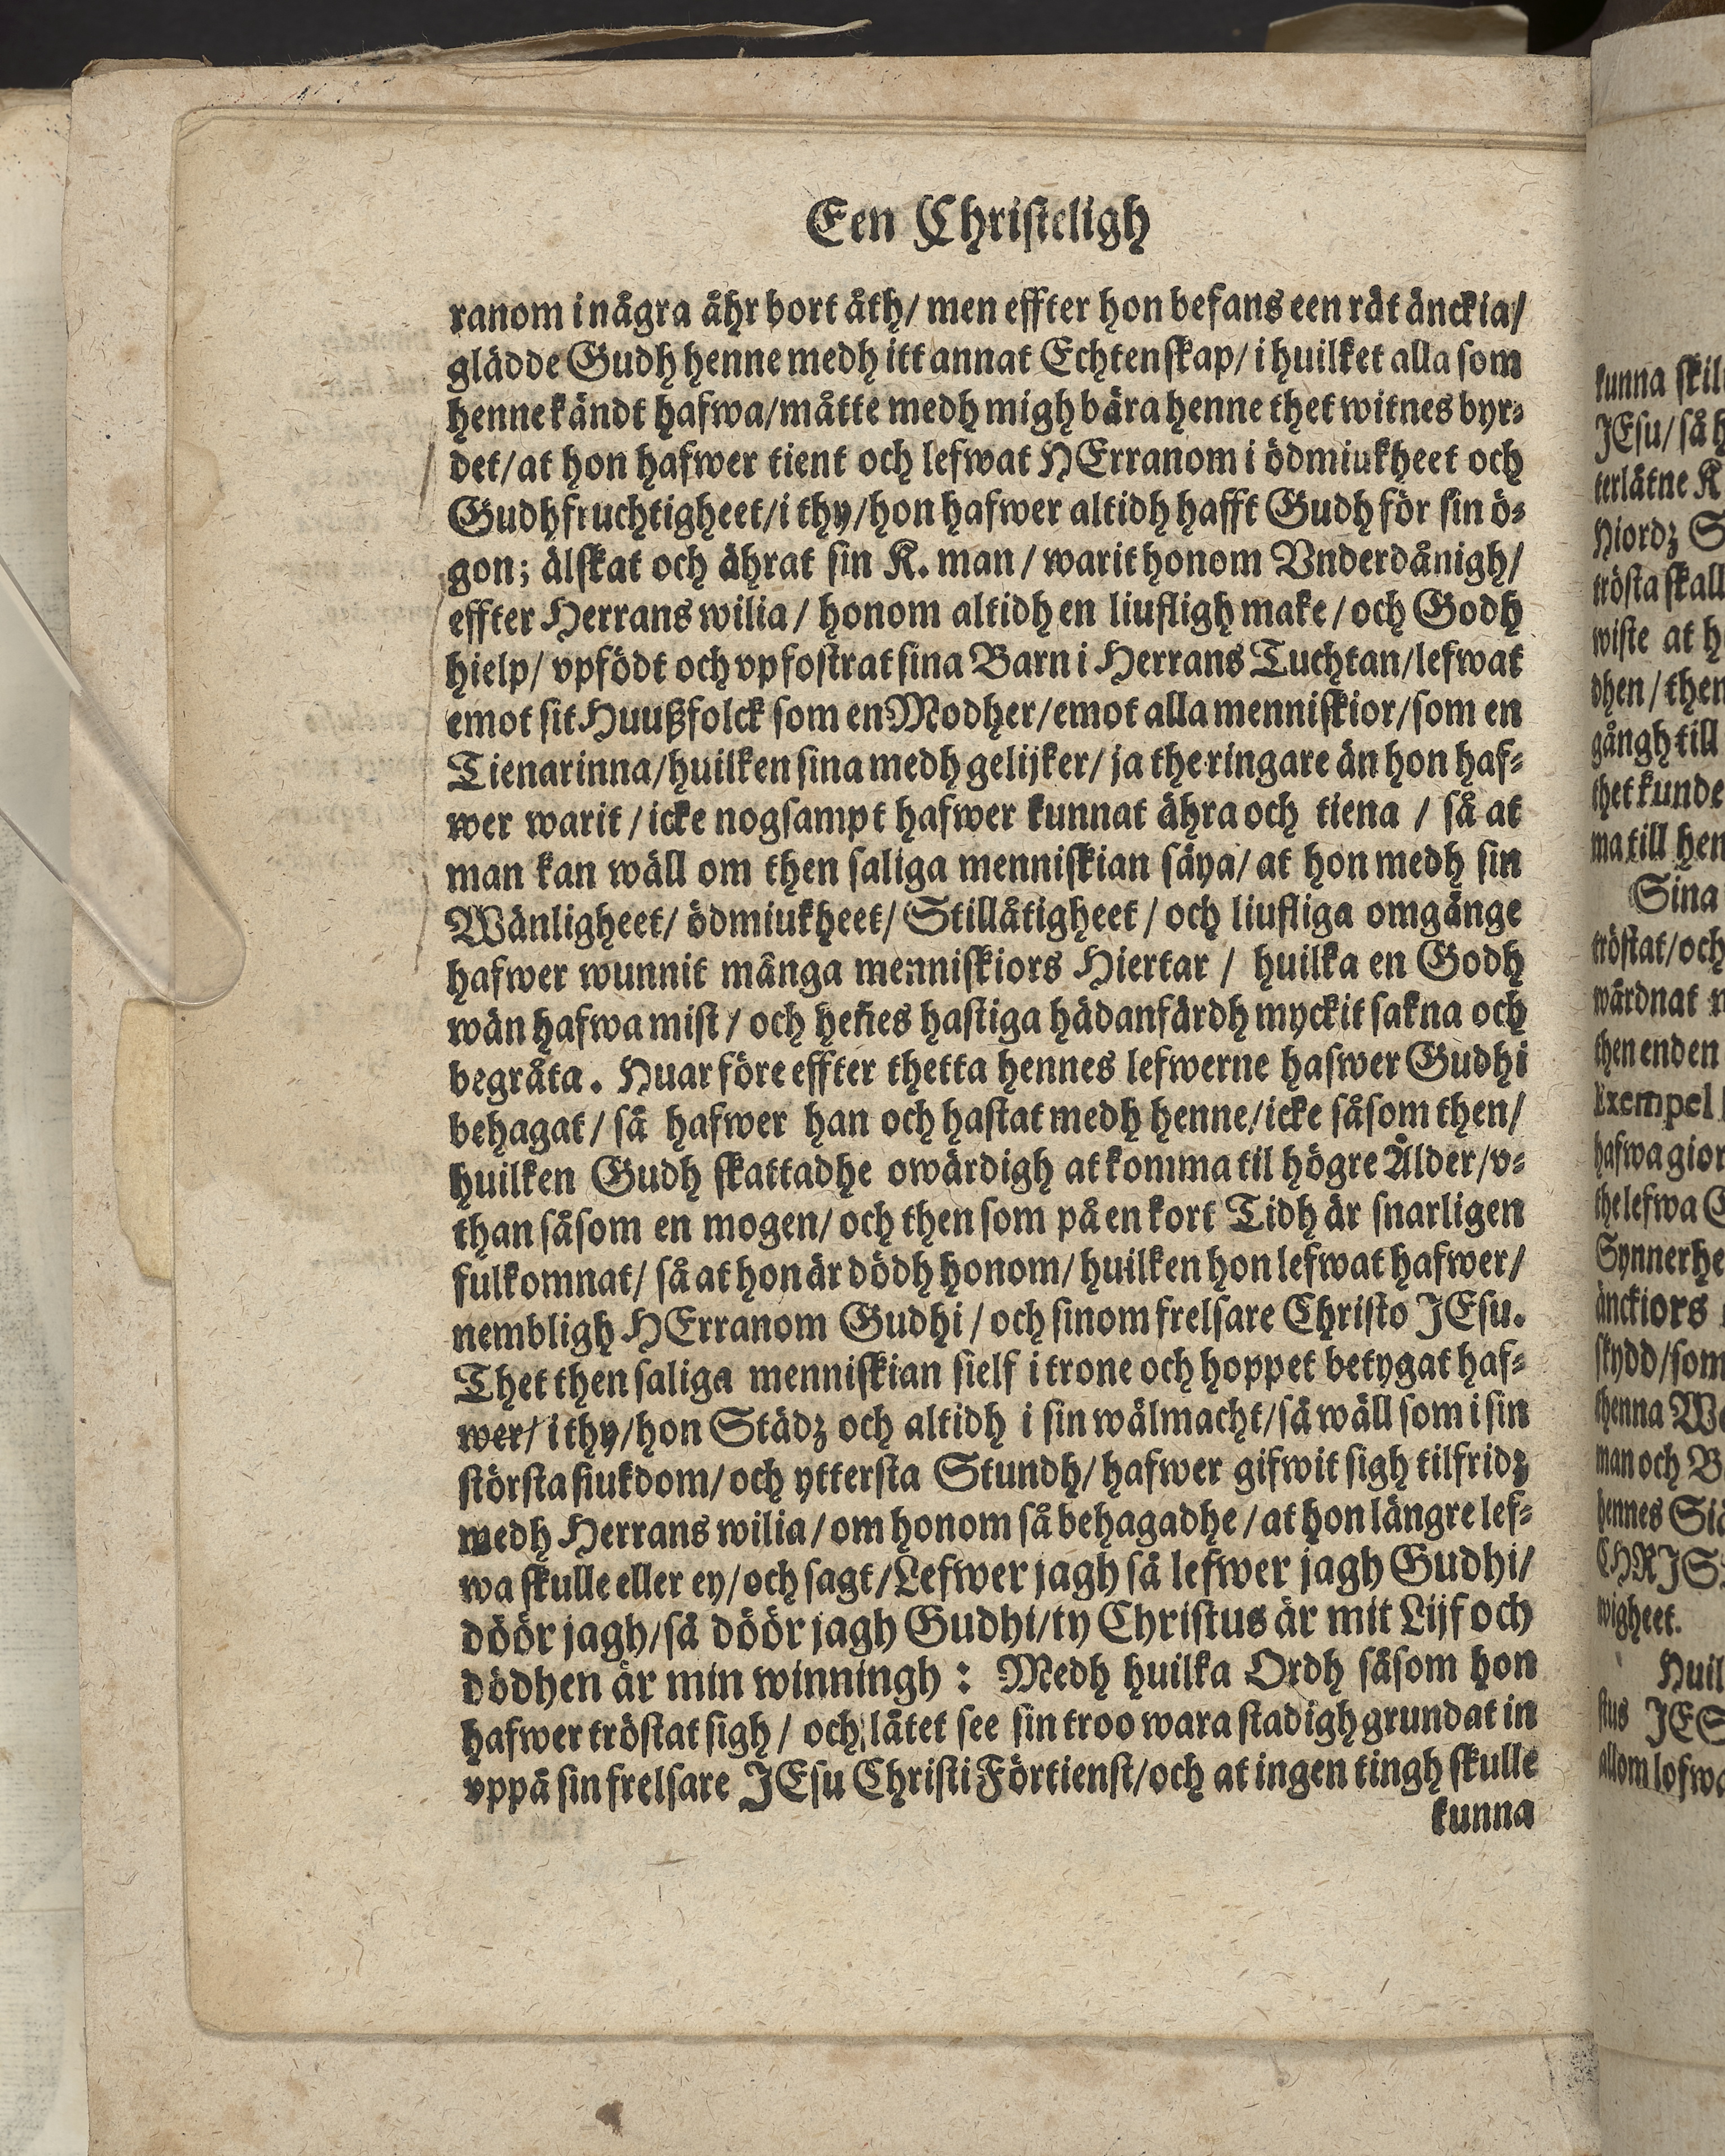 Een Christeligh
ranom i några åhr bort åth/ men effter hon befans een rät änckia/
glädde Gudh henne medh itt annat Echtenskap/ i huilket alla som
henne kändt hafwa/måtte medh migh bära henne thet witnes byr-
det/at hon hafwer tient och lefwat HErranom i ödmiukheet och
Gudhfruchtigheet/i thy/hon hafwer altidh hafft Gudh för sin ö-
gon; älskat och ährat sin K. man/ warit honom Vnderdånigh/
effter Herrans wilia/ honom altidh en liufligh make/och Godh
hielp/ vpfödt och vpfostrat sina Barn i Herrans Tuchtan/lefwat
emot sit Huußfolck som en Modher/emot alla menniskior/som en
Tienarinna/huilken sina medh gelijker/ ja the ringare än hon haf-
wer warit/icke nogsampt hafwer kunnat ähra och tiena / så at
man kan wäll om then saliga menniskian säya/ at hon medh sin
Wänligheet/ ödmiukheet/ Stillåtigheet/ och liufliga omgänge
hafwer wunnit många menniskiors Hiertar / huilka en Godh
wän hafwa mist/ och heñes hastiga hädanfärdh myckit sakna och
begråta. Huar före effter thetta hennes lefwerne hafwer Gudhi
behagat/ så hafwer han och hastat medh henne/icke såsom then/
huilken Gudh skattadhe owärdigh at komma til högre Ålder/v-
than såsom en mogen/ och then som på en kort Tidh är snarligen
fulkomnat/ så at hon är dödh honom/ huilken hon lefwat hafwer/
nembligh HErranom Gudhi/ och sinom frelsare Christo JEsu.
Thet then saliga menniskian sielf i trone och hoppet betygat haf-
wer/ i thy/hon Städz och altidh i sin wälmacht/så wäll som i sin
största siukdom/och yttersta Stundh/hafwer gifwit sigh tilfridz
medh Herrans wilia/om honom så behagadhe/at hon längre lef-
wa skulle eller ey/och sagt/Lefwer jagh så lefwer jagh Gudhi/
döör jagh/så döör jagh Gudhi/ty Christus är mit Lijf och
dödhen är min winningh: Medh huilka Ordh såsom hon
hafwer tröstat sigh/ och låtet see sin troo wara stadigh grundat in
vppå sin frelsare JEsu Christi Förtienst/och at ingen tingh skulle
kunna
kunna
JEsu/ så
terlåtne
Hiordz
trösta skall
wiste at
dhen/then
gångh till
thet kunde
ma till hen
Sina
tröstat/och
wårdnat
then enden
Exempel
hafwa gior
the lefwa
Synnerhe
änckiors
skydd/som
thenna
man och
hennes
wigheet.
Huil
stus
allom lofwa